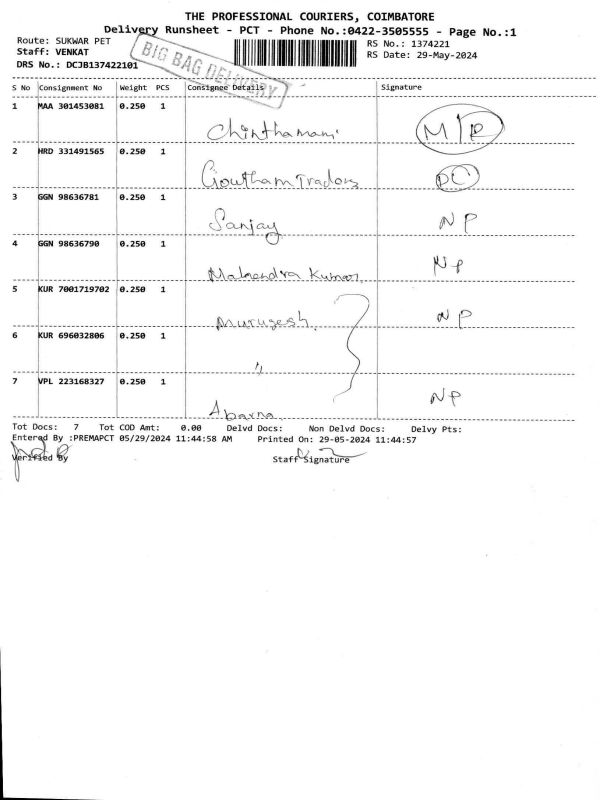 THE PROFESSIONAL COURIERS, COIMBATORE
Delivery Runsheet - PCT - Phone No.:0422-3505555 - Page No.:1
Route: SUKWAR PET
RS No.: 1374221
Staff: VENKAT
RS Date: 29-May-2024
DRS No.: DCJB137422101
BIG BAG DELIVERY
S No Consignment No Weight PCS Consignee Details Signature
1 MAA 301453081 0.250 1
Chinthamani M/R
2 HRD 331491565 0.250 1
Goutham Traders DC
3 GGN 98636781 0.250 1
Sanjay NP
4 GGN 98636790 0.250 1
Mahendra Kumar NP
5 KUR 7001719702 0.250 1
Murugesh NP
6 KUR 696032806 0.250 1
"
7 VPL 223168327 0.250 1
Abarna NP
Tot Docs: 7 Tot COD Amt: 0.00 Delvd Docs: Non Delvd Docs: Delvy Pts:
Entered By :PREMAPCT 05/29/2024 11:44:58 AM Printed On: 29-05-2024 11:44:57
Verified By Staff Signature